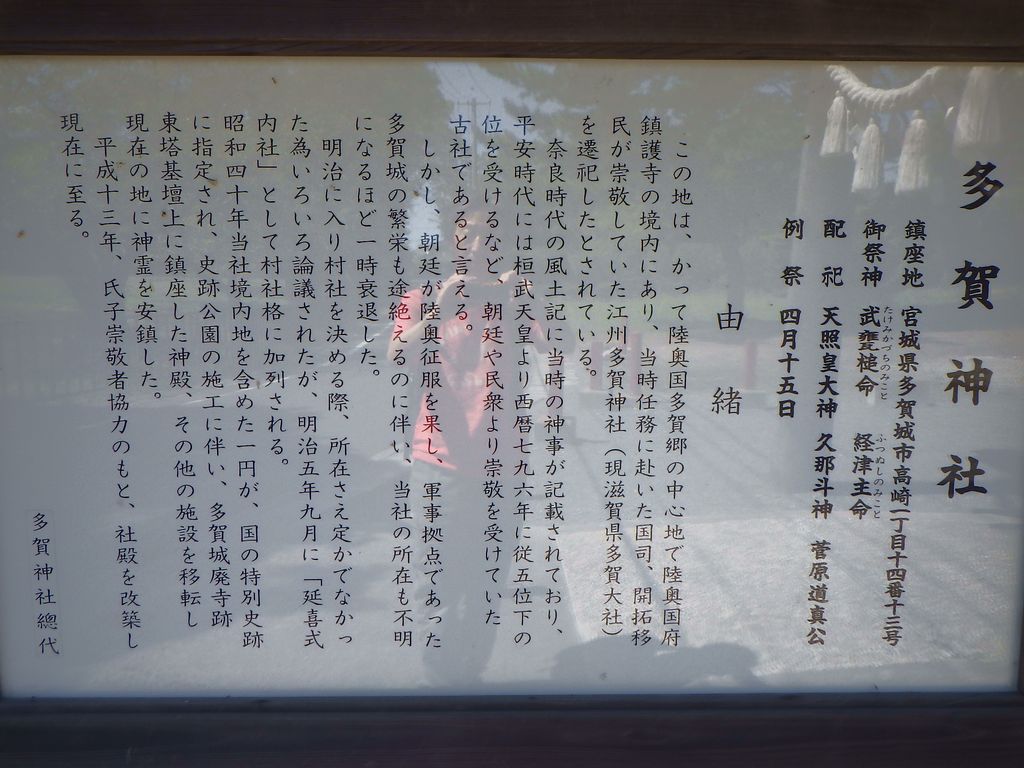 多賀神社
鎮座地　宮城県多賀城市高崎一丁目十四番十三号
御祭神　武甕槌命　経津主命
たけみかづちのみこと　ふつぬしのみこと
配　祀　天照皇大神　久那斗神　菅原道真公
例　祭　四月十五日
由　緒
この地は、かって陸奥国多賀郷の中心地で陸奥国府
鎮護寺の境内にあり、当時任務に赴いた国司、開拓移
民が崇敬していた江州多賀神社（現滋賀県多賀大社）
を遷祀したとされている。
奈良時代の風土記に当時の神事が記載されており、
平安時代には桓武天皇より西暦七九六年に従五位下の
位を受けるなど、朝廷や民衆より崇敬を受けていた
古社であると言える。
しかし、朝廷が陸奥征服を果し、軍事拠点であった
多賀城の繁栄も途絶えるのに伴い、当社の所在も不明
になるほど一時衰退した。
明治に入り村社を決める際、所在さえ定かでなかっ
た為いろいろ論議されたが、明治五年九月に「延喜式
内社」として村社格に加列される。
昭和四十年当社境内地を含めた一円が、国の特別史跡
に指定され、史跡公園の施工に伴い、多賀城廃寺跡
東塔基壇上に鎮座した神殿、その他の施設を移転し
現在の地に神霊を安鎮した。
平成十三年、氏子崇敬者協力のもと、社殿を改築し
現在に至る。
多賀神社總代